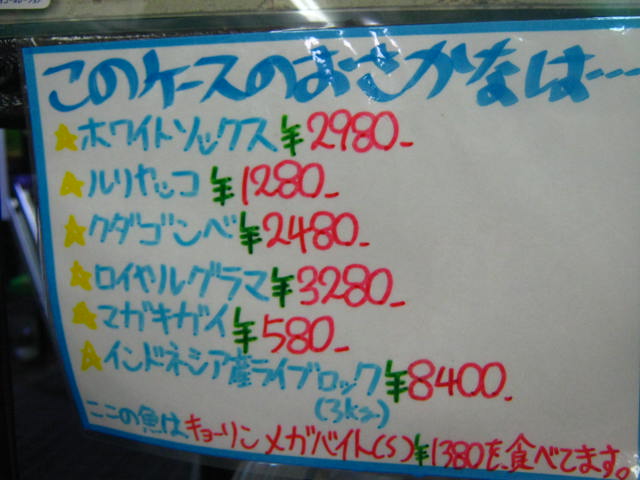 このケースのおさかなは…
ホワイトソックス ¥2980-
ルリヤッコ ¥1280-
クダゴンベ ¥2480-
ロイヤルグラマ ¥3280-
マガキガイ ¥580-
インドネシア産ライブロック ¥8400.
(3kg)
ここの魚はキョーリン メガバイト(S)¥1380を食べてます。